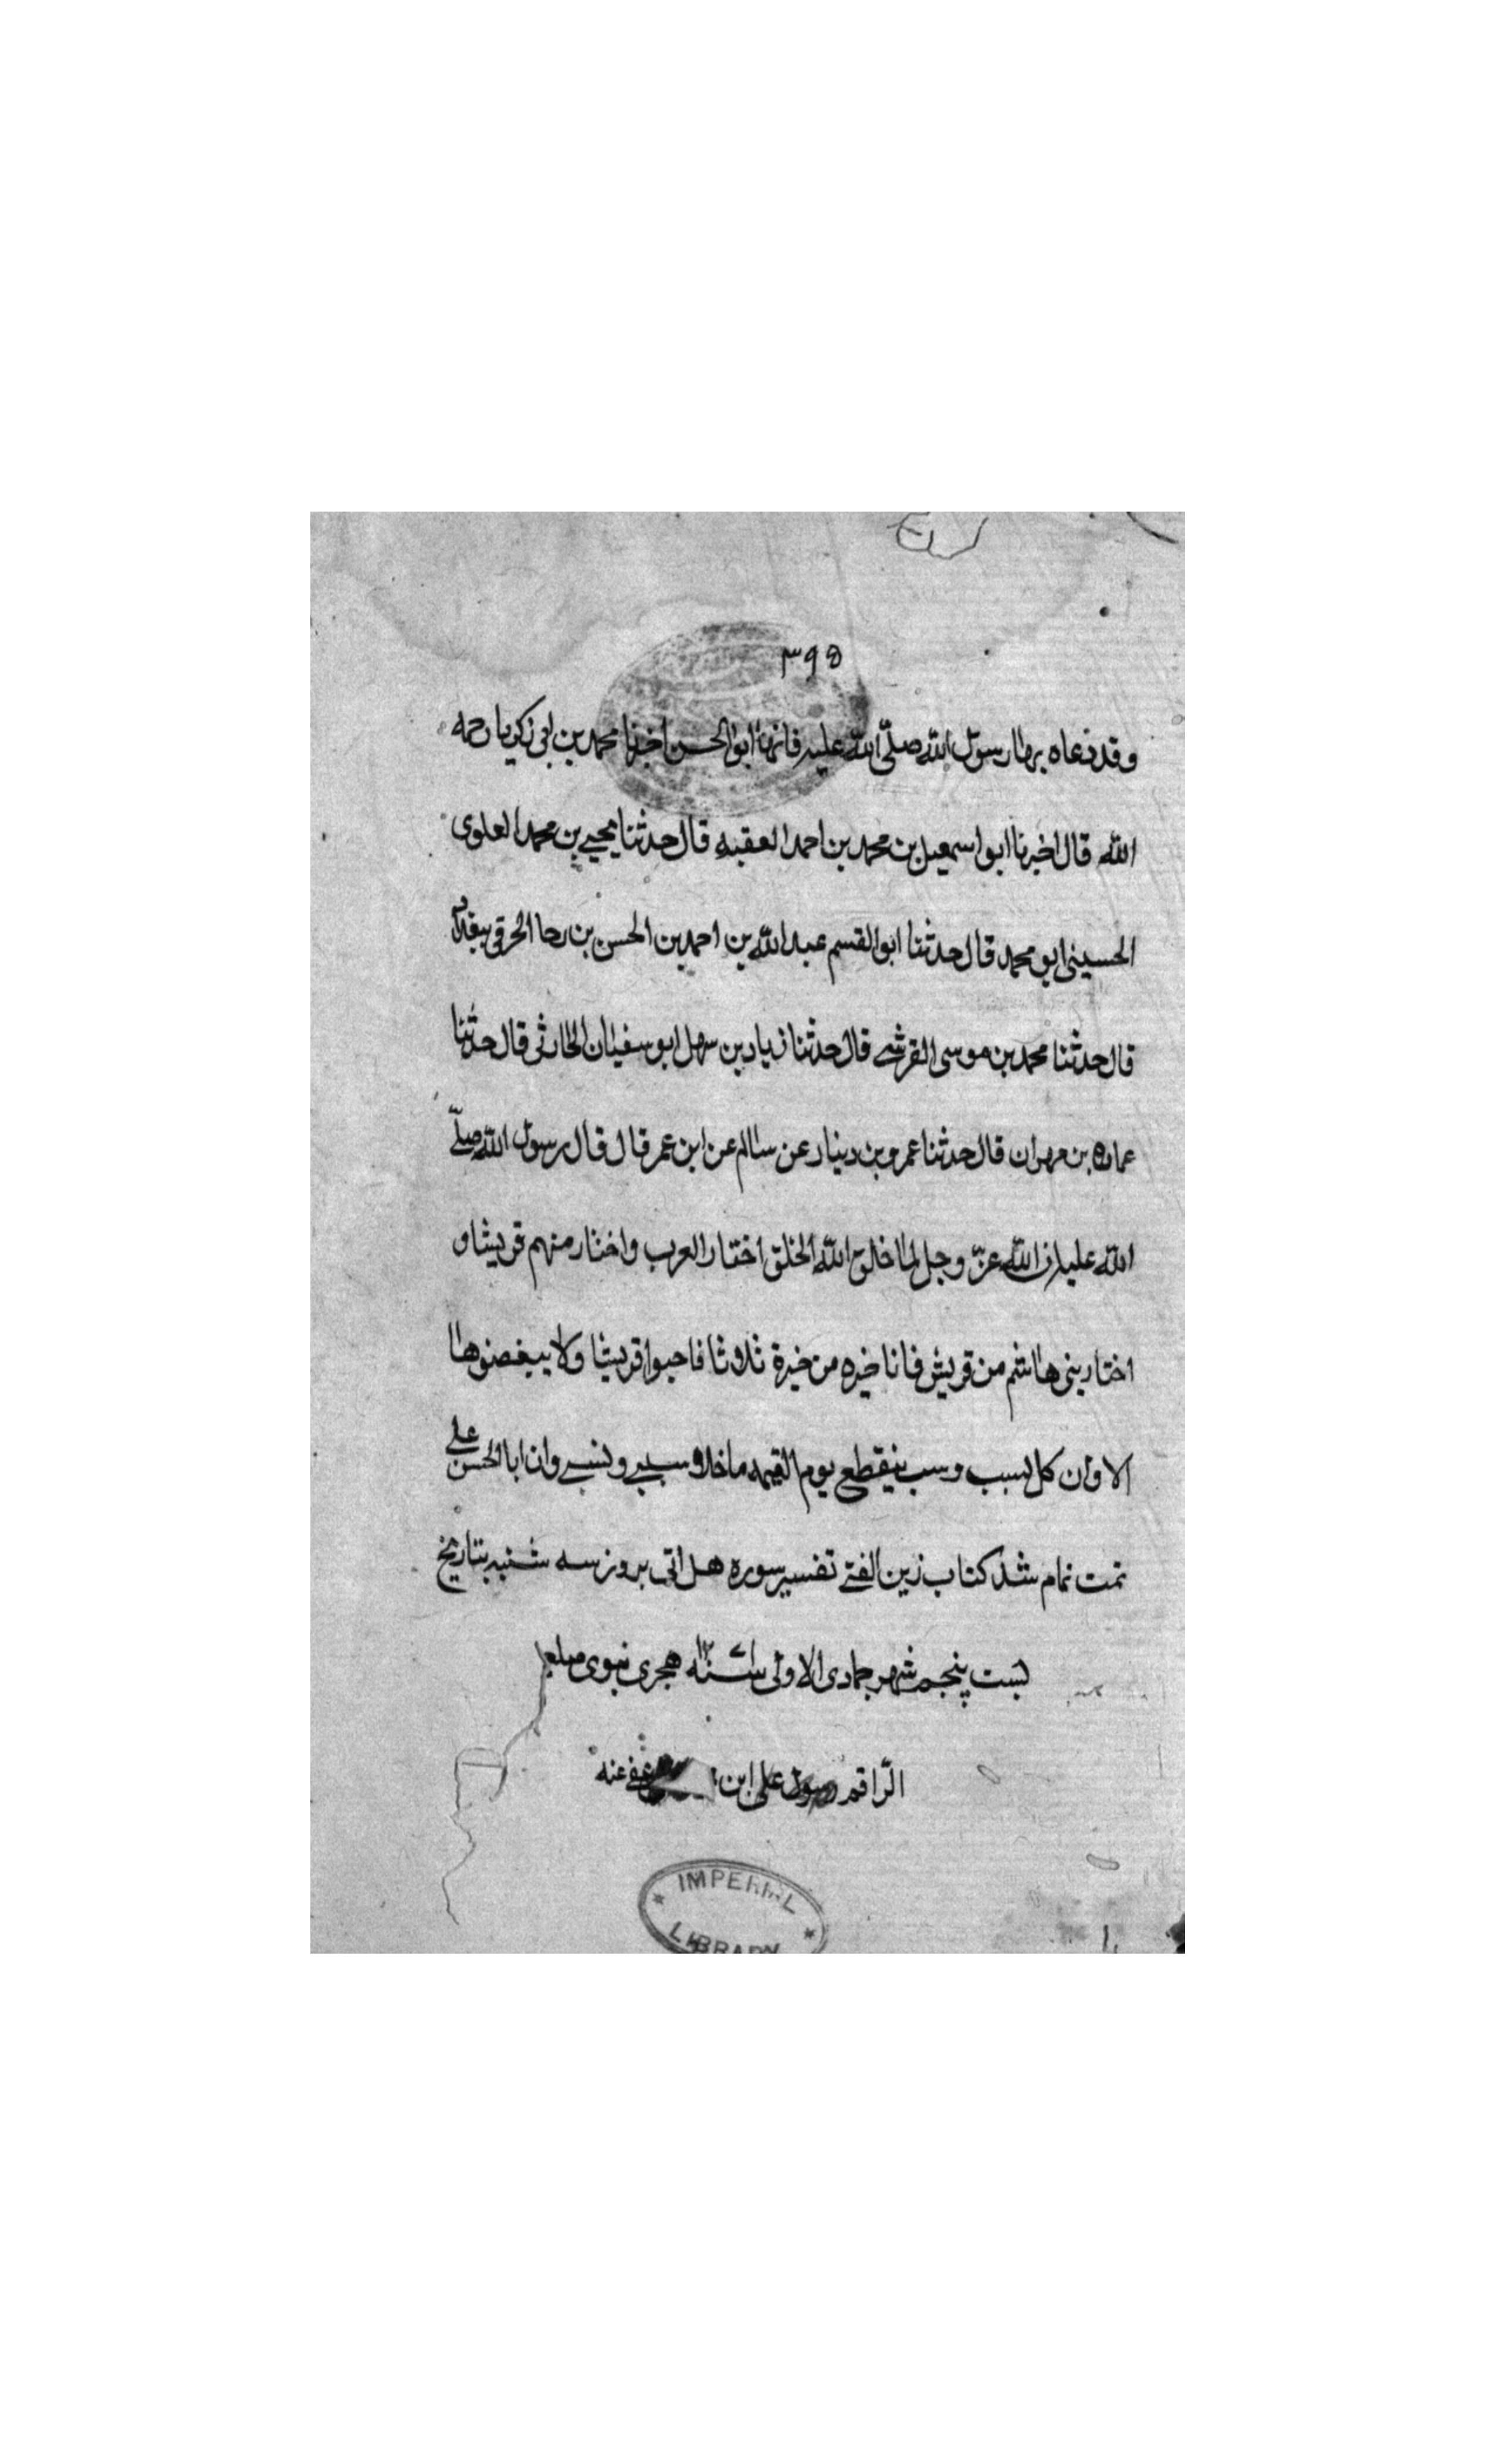 ۳۹۵
وقد دعاه بها رسول الله صلّى الله عليه فانها ابو الحسن اخبرنا محمد بن ابى زكريا رحمه
الله قال اخبرنا ابو اسمعيل بن محمد بن احمد العقبه قال حدثنا يحيے بن محمد العلوى
الحسينى ابو محمد قال حدثنا ابو القسم عبد الله بن احمد بن الحسن بن رحا الحرقى ببغداد
قال حدثنا محمد بن موسى القرشے قال حدثنا زياد بن سهل ابو سفيان الحارثى قال حدثنا
عماره بن مهران قال حدثنا عمرو بن دينار عن سالم عن ابن عمر قال قال رسول الله صلّے
الله عليه ان الله عزّ وجل لما خلق الله الخلق اختار العرب واختار منهم قريشا و
اختار بنى هاشم من قريش فانا خيره من خيرة ثلاثا فاحبوا قريشا ولا يبغضوها
الا وان كل سبب ونسب ينقطع يوم القيمه ما خلا سببے ونسبے وان ابا الحسن علے
تمت تمام شد كتاب زين الفتے تفسير سوره هل اتى بروز سه شنبه بتاريخ
بست پنجم شهر جمادى الاولى سنه هجرى نبوى صلعم
الرّاقم رسول على ابن عفے عنه
IMPERIAL
LIBRARY